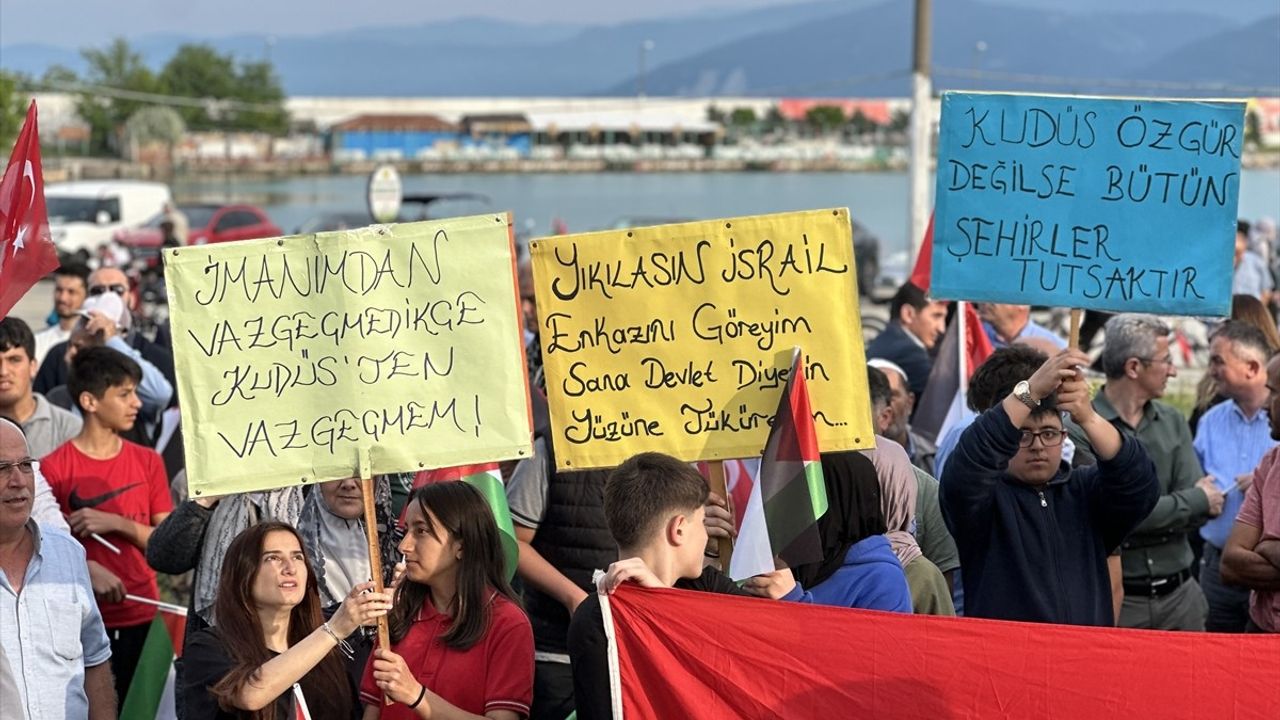 İMANIMDAN
VAZGEGMEDİKGE
KUDÜS'TEN
VAZGEGMEM!
YIKILASIN İSRAİL
Enkazını Göreyim
Sana Devlet Diyenin
Yüzüne Tüküreyim...
KUDÜS ÖZGÜR
DEĞİLSE BÜTÜN
ŞEHİRLER
TUTSAKTIR